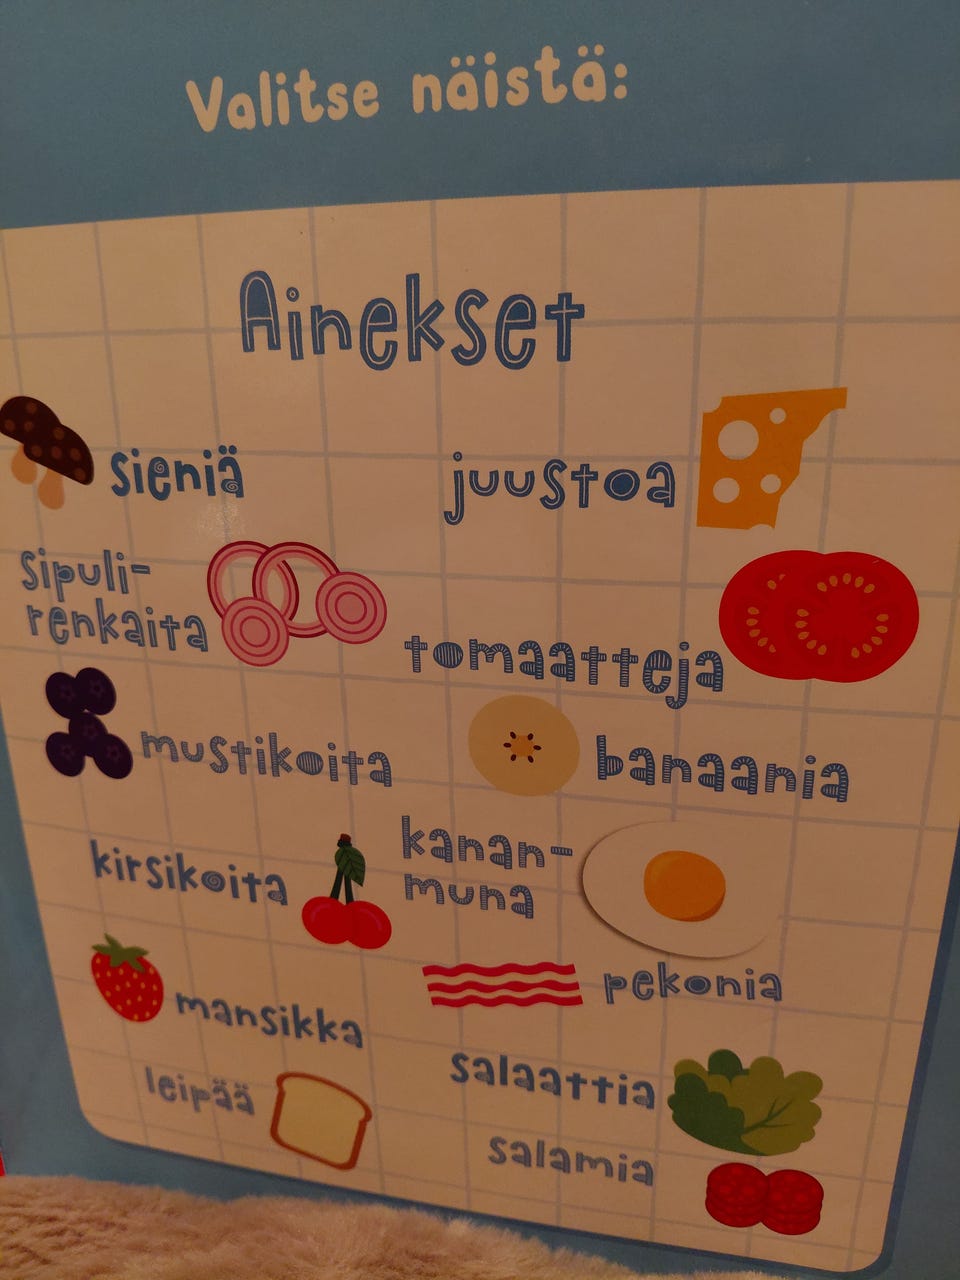 Valitse näistä:
Ainekset
sieniä
juustoa
sipuli-
renkaita
tomaatteja
mustikoita
banaania
kirsikoita
kanan-
muna
mansikka
pekonia
leipää
salaattia
salamia